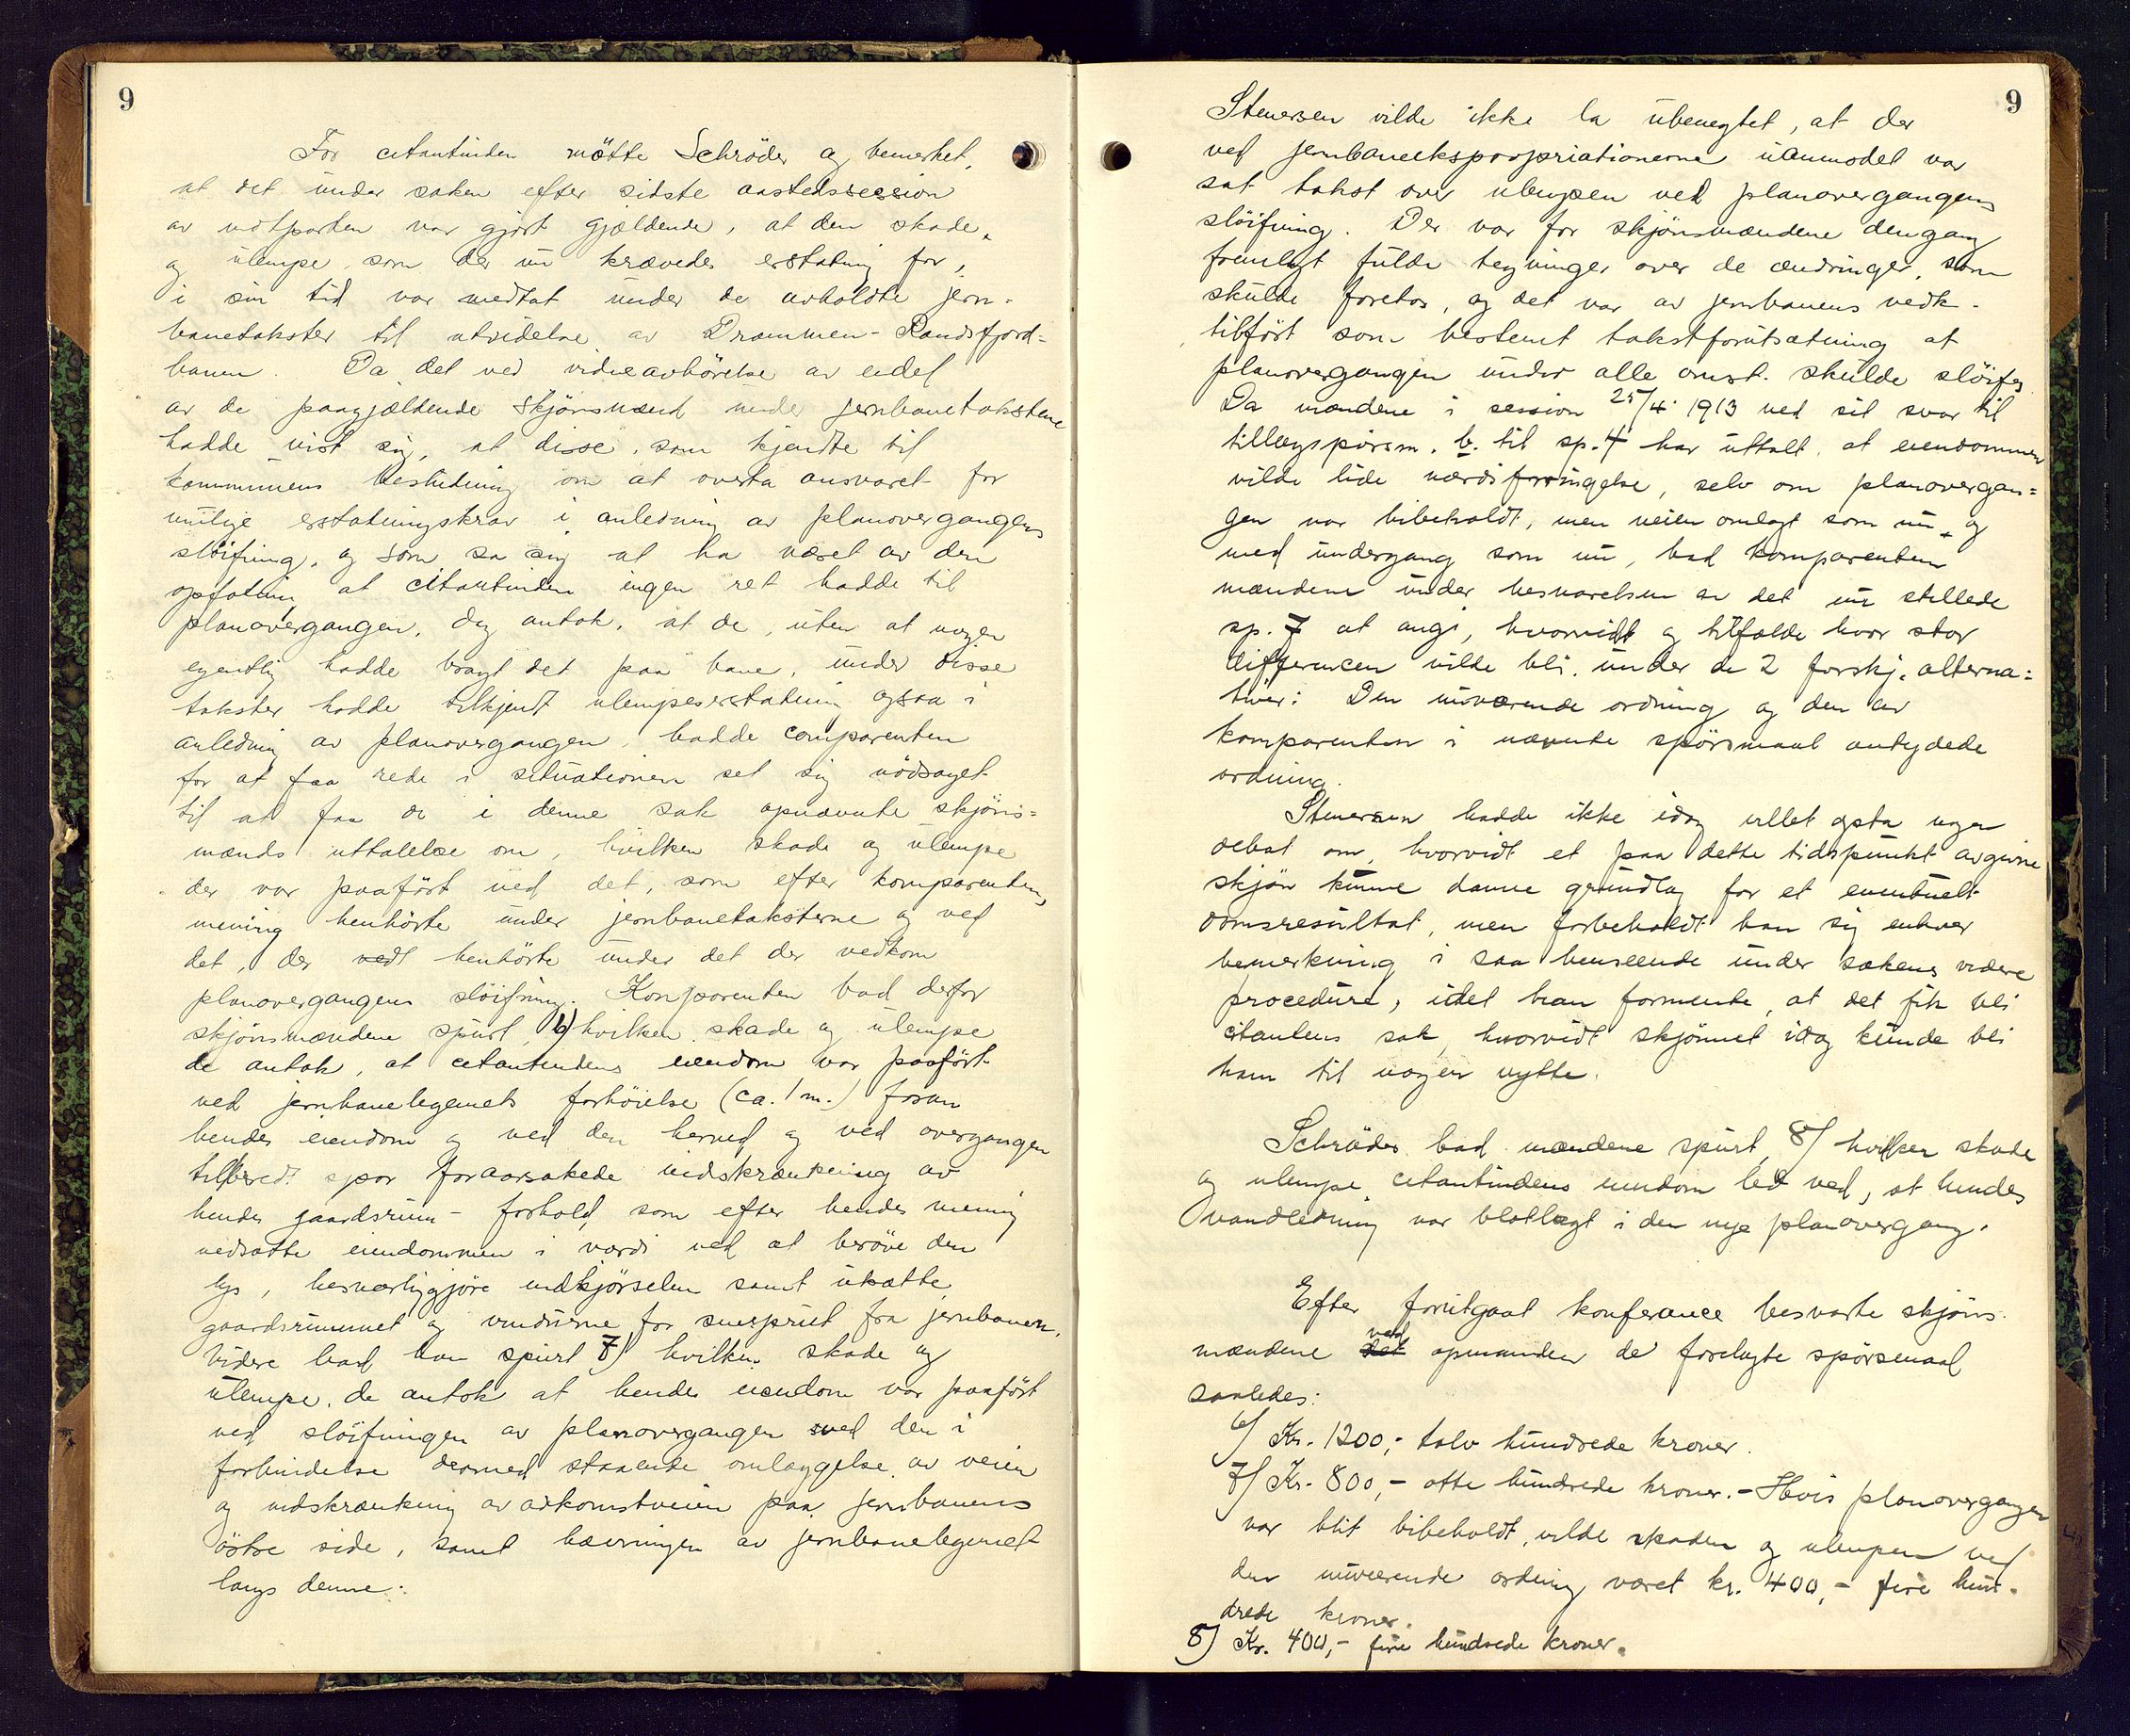 9
For citantinden mötte Schröder og bemerket,
at det under saken efter sidste aastedssession
av motparten var gjort gjældende, at den skade,
og ulempe som der nu krævedes erstatning for,
i sin tid var medtat under de avholdte jern-
banetakster til utvidelse av Drammen-Randsfjord=
banen. Da det ved vidneavhörelse av endel
av de paagjældende skjönsmænd under jernbanetakstene
hadde vist sig, at disse, som kjendte til
kommunens beslutning om at overta ansvaret for
mulige erstatningskrav i anledning av planovergangens
slöifning, og som sa sig at ha været av den
opfatning at citantinden ingen ret hadde til
planovergangen, dog antok, at de, uten at nogen
egentlig hadde bragt det paa bane, under disse
takster hadde tilkjendt ulempeserstatning ogsaa i
anledning av planovergangen, hadde comparenten
for at faa rede i situationen set sig nödsaget
til at faa de i denne sak opnævnte skjöns=
mænds uttalelse om, hvilken skade og ulempe
der var paafört ved det, som efter komparentens
mening henhörte under jernbanetaksterne og ved
det, der vedt henhörte under det der vedkom
planovergangens slöifning. Komparenten bad derfor
skjönsmændene spurt, 6) hvilken skade og ulempe
de antok, at citantindens eiendom var paafört
ved jernbanelegemets forhöielse (ca. 1 m.) foran
hendes eiendom og ved den herved og ved overgangen
til bredt spor foraarsakede indskrænkning av
hendes gaardsrum - forhold, som efter hendes mening
nedsatte eiendommen i værdi ved at beröve den
lys, besværliggjöre indkjörselen samt utsatte
gaardsrummet og vinduerne for snesprut fra jernbanen.
Videre bad han spurt 7) hvilken skade og
ulempe de antok at hendes eiendom var paafört
ved slöifningen av planovergangen med den i
forbindelse dermed staaende omlæggelse av veien
og indskrænkning av adkomstveien paa jernbanens
östre side, samt hævningen av jernbanelegemet
langs denne.
9
Stenersen vilde ikke la ubenegtet, at der
ved jernbaneekspropriationerne uanmodet var
sat takst over ulempen ved planovergangens
slöifning. Der var for skjönsmændene dengang
fremlagt fulde tegninger over de ændringer, som
skulde foretas, og det var av jernbanens vedk.
tilfört som bestemt takstforutsætning at
planovergangen under alle omst. skulde slöifes.
Da mændene i session 25/4 1913 ved sit svar til
tillægsspörsm. b. til sp. 4 har uttalt, at eiendommen
vilde lide værdiforringelse, selv om planovergan=
gen var bibeholdt, men veien omlagt som nu, og
med undergang som nu, bad komparenten
mændene under besvarelsen av det nu stillede
sp. 7 at angi, hvorvidt og tilfælde hvor stor
differencen vilde bli under de 2 forskj. alterna=
tiver: Den nuværende ordning og den av
komparenten i nævnte spörsmaal antydede
ordning.
Stenersen hadde ikke idag villet opta nogen
debat om, hvorvidt et paa dette tidspunkt avgivne
skjön kunne danne grundlag for et eventuelt
domsresultat, men forbeholdt han sig enhver
bemerkning i saa henseende under sakens videre
procedure, idet han formente, at det fik bli
citantens sak, hvorvidt skjönnet idag kunde bli
ham til nogen nytte.
Schröder bad mændene spurt 8) hvilken skade
og ulempe citantindens eiendom led ved, at hendes
vandledning var blotlagt i den nye planovergang.
Efter forutgaat konferance besvarte skjöns.
mændene det ved opmanden de forelagte spörsmaal
saaledes:
6) Kr. 1200,- tolv hundrede kroner.
7) Kr. 800,- otte hundrede kroner. - Hvis planovergangen
var blit bibeholdt, vilde skaden og ulempen ved
den nuværende ordning været kr. 400,- fire hun-
drede kroner.
8) Kr. 400,- fire hundrede kroner.